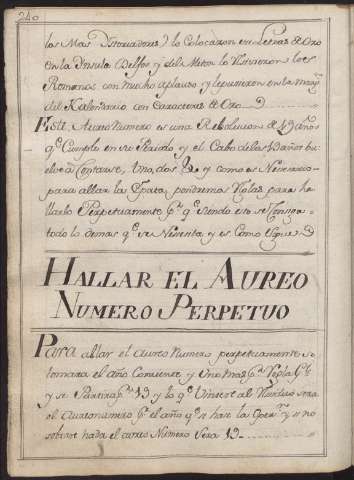 240
los Mas Historiadores) lo Colocaron en Letras de Oro
en la Insula Delfos y del Meton lo Hisieron los
Romanos con mucho aplauso y le pusieron en la
del Kalendario con Caracteres de Oro
Este Aureo Numero es una Rebolucion de 19 años
q.e Cumplido en su Periodo y el Cabo delos 19 años buel
ve á Contarse, Uno, dos &c y como es Necesario
para allar la Epacta, pondremos Reglas para ha
llarlo Perpetuamente p.r q.e siendo esto se Consiga
todo lo demas q.e se Necesita y es Como Sigue
HALLAR EL AUREO
NUMERO PERPETUO
Para allar el Aureo Numero perpetuamente se
tomara el año Corriente y Uno mas p.r Regla
y se Partira p.r 19 y lo q.e Viniere al Residuo sera
el Aureonumero p.a el año q.e se hase la Oper.n y si no
sobrare nada el aureo Numero Sera 19